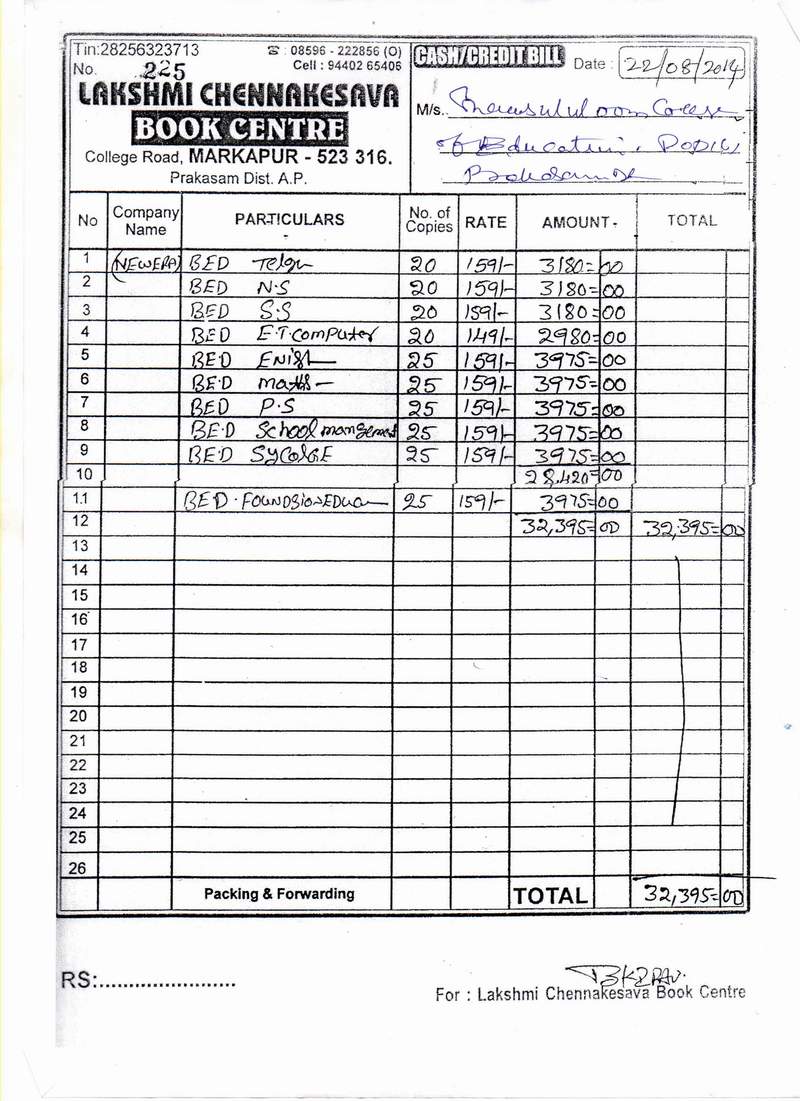 Tin:28256323713
☎ : 08596 - 222856 (O)
No. 225
Cell : 94402 65406
LAKSHMI CHENNAKESAVA
BOOK CENTRE
College Road, MARKAPUR - 523 316.
Prakasam Dist. A.P.
CASH/CREDIT BILL Date : 22/08/2014
M/s..
of Education,
No Company Name PARTICULARS No. of Copies RATE AMOUNT TOTAL
1 (NEWERA) BED Telgu 20 159/- 3180=00
2 BED N.S 20 159/- 3180=00
3 BED S.S 20 159/- 3180=00
4 BED E.T.computer 20 149/- 2980=00
5 BED 25 159/- 3975=00
6 BED maths 25 159/- 3975=00
7 BED P.S 25 159/- 3975=00
8 BE.D School mangement 25 159/- 3975=00
9 BE.D SYCOLGE 25 159/- 3975=00
10 28,420=00
11 BED. 25 159/- 3975=00
12 32,395=00 32,395=00
13
14
15
16
17
18
19
20
21
22
23
24
25
26
Packing & Forwarding TOTAL 32,395=00
RS:........................
For : Lakshmi Chennakesava Book Centre